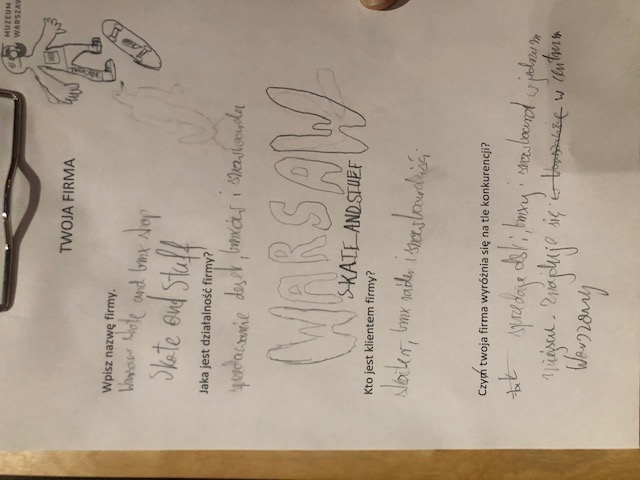 MUZEUM
WARSZAWY
TWOJA FIRMA
Wpisz nazwę firmy.
Warsaw skate and bmx shop
Skate and Stuff
Jaka jest działalność firmy?
sprzedawanie desek, bmxów i snowboardów
WARSAW
SKATE AND STUFF
Kto jest klientem firmy?
skaterzy, bmx riderzy i snowboardziści
Czym twoja firma wyróżnia się na tle konkurencji?
sprzedaje deski, bmxy i snowboard w jednym
miejscu. Znajduje się w centrum
Warszawy